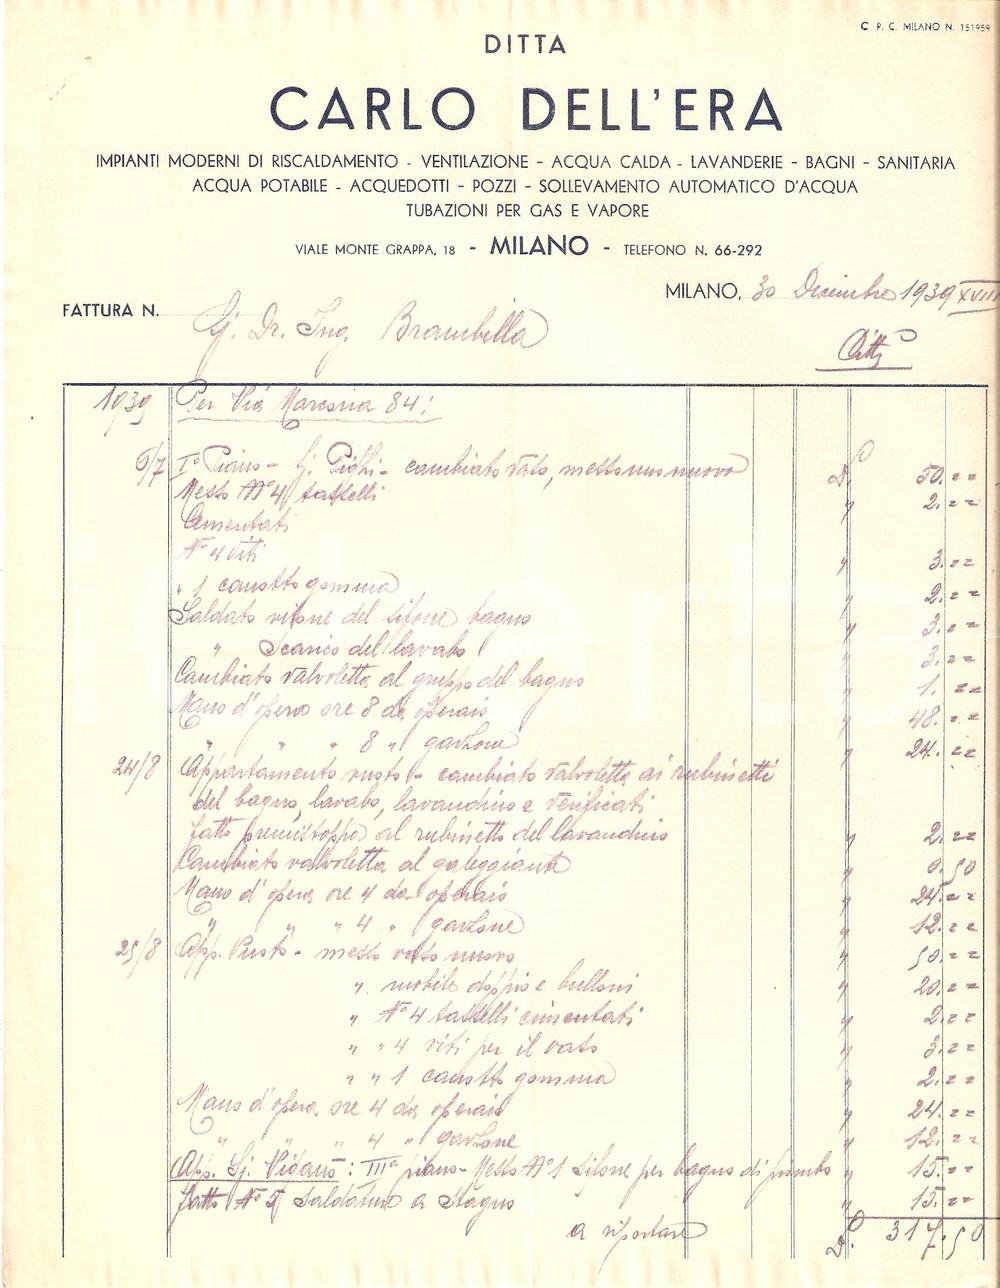 C. P. C. MILANO N. 151959
DITTA
CARLO DELL'ERA
IMPIANTI MODERNI DI RISCALDAMENTO - VENTILAZIONE - ACQUA CALDA - LAVANDERIE - BAGNI - SANITARIA
ACQUA POTABILE - ACQUEDOTTI - POZZI - SOLLEVAMENTO AUTOMATICO D'ACQUA
TUBAZIONI PER GAS E VAPORE
VIALE MONTE GRAPPA, 18 - MILANO - TELEFONO N. 66-292
MILANO, 30 Dicembre 1939 XVIII
FATTURA N.
Sig. Dr. Ing. Brambilla
Città
1939 Per Via 84:
6/7 I° Piano - Sig. Pighi - cambiato vaso, messo uno nuovo £. 50.==
Messo N° 4 tasselli " 2.==
Cementati
N° 4 viti " 3.==
" 1 canotto gomma " 2.==
Saldato vitone del sifone bagno " 3.==
" Scarico del lavabo " 3.==
Cambiato valvoletta al gruppo del bagno " 1.==
Mano d'opera ore 8 da operaio " 48.==
" " " 8 " garzone " 24.==
24/8 Appartamento vuoto - cambiato valvoletta ai rubinetti
del bagno, lavabo, lavandino e verificati
fatto premistoppa al rubinetto del lavandino " 2.==
Cambiato valvoletta al galeggiante " 0.50
Mano d'opera ore 4 da operaio " 24.==
" " " 4 " garzone " 12.==
25/8 App. Vuoto - messo vaso nuovo " 50.==
" mobile doppio e bulloni " 20.==
" N° 4 tasselli cimentati " 2.==
" " 4 viti per il vaso " 3.==
" " 1 canotto gomma " 2.==
Mano d'opera ore 4 da operaio " 24.==
" " " 4 " garzone " 12.==
App. Sig. Viganò: III° piano - Messo N° 1 sifone per bagno di piombo " 15.==
fatto N° 5 Saldature a Stagno " 15.==
a riportare £. 317.50